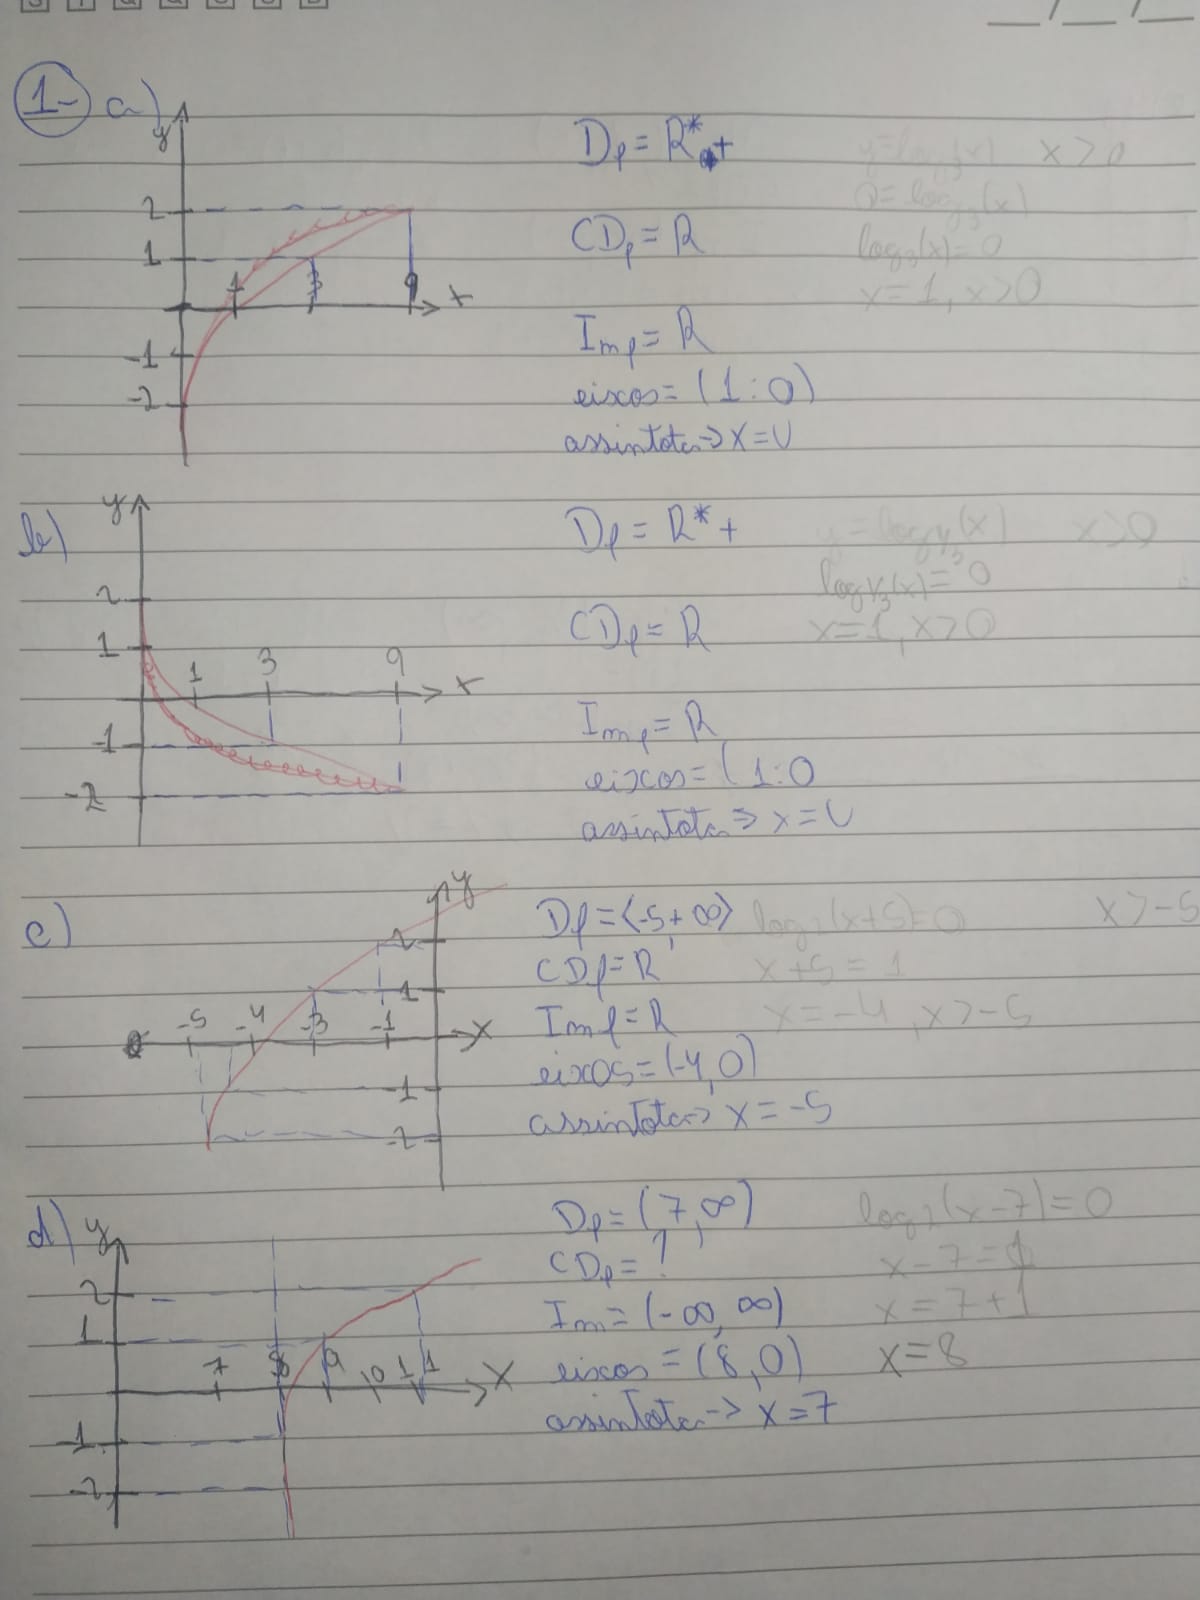 1- a)
y
2
1
-1
-2
1 3 9 x
Df = R*+
CDf = R
Imf = R
eixos = (1:0)
assintota => x=0
y=log3(x) x>0
0=log3(x)
log3(x)=0
x=1, x>0
b)
y
2
1
-1
-2
1 3 9 x
Df = R*+
CDf = R
Imf = R
eixos = (1:0
assintota => x=0
y=log1/3(x) x>0
log1/3(x)=0
x=1, x>0
c)
y
2
1
-5 -4 -3 -1 x
-1
-2
Df = <-5,+∞>
CDf = R
Imf = R
eixos = (-4,0)
assintota-> x=-5
log2(x+5)=0 x>-5
x+5=1
x=-4, x>-5
d)
y
2
1
7 8 9 10 11 x
-1
-2
Df = (7,∞)
CDf = ?
Im = (-∞,∞)
eixos = (8,0)
assintota-> x=7
log2(x-7)=0
x-7=1
x=7+1
x=8